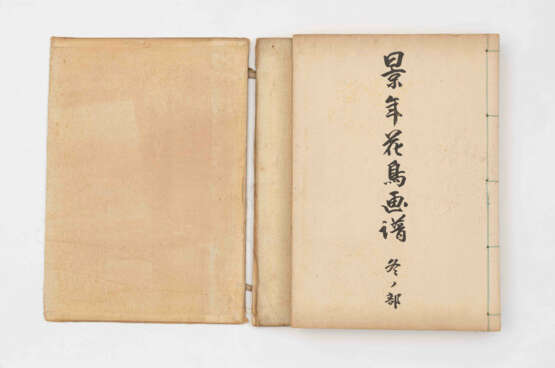 景年花鳥画譜
冬ノ部